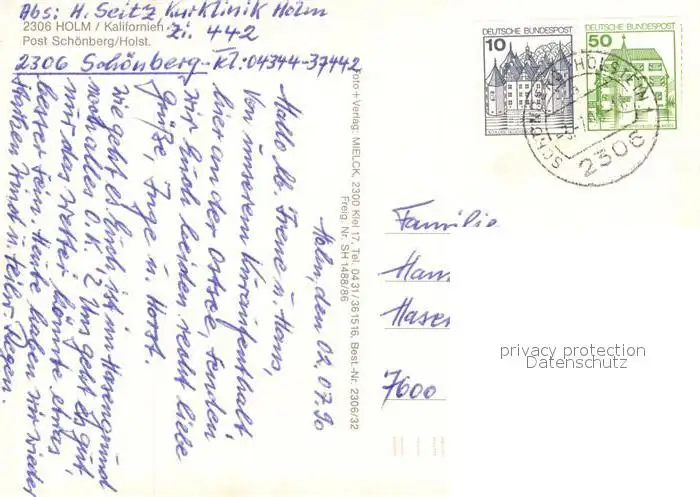 Abs: H. Seitz, Kurklinik Holm
2306 HOLM / Kalifornien
Zi. 442
Post Schönberg/Holst.
2306 Schönberg-Kl: 04344-37442
Holm, den 02.07.90
Hallo lb. Irene u. Hans,
Von unserem Kuraufenthalt
hier an der Ostsee, senden
wir Euch beiden recht liebe
Grüße, Inge u. Horst.
Wie geht es Euch, ist im Hasengrund
noch alles O.K.? Uns geht es gut
nur das Wetter könnte etwas
besser sein. Heute haben wir wieder
starken Wind u. teilw. Regen.
Foto + Verlag: MIELCK, 2300 Kiel 17, Tel. 0431/361516, Best.-Nr. 2306/32
Freig. Nr. SH 1488/86
10 DEUTSCHE BUNDESPOST
DEUTSCHE BUNDESPOST
50
SCHÖNBERG, HOLSTEIN 1
2306
Familie
Han
Hasen
7600
privacy protection
Datenschutz